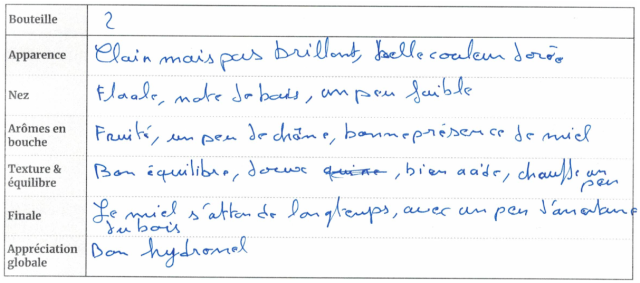 Bouteille 2
Apparence Clair mais pas brillant, belle couleur dorée
Nez Florale, note de bois, un peu faible
Arômes en bouche Fruité, un peu de chêne, bonne présence de miel
Texture & équilibre Bon équilibre, doux, bien acide, chauffe un peu
Finale Le miel s'attarde longtemps, avec un peu d'amertume
du bois
Appréciation globale Bon hydromel